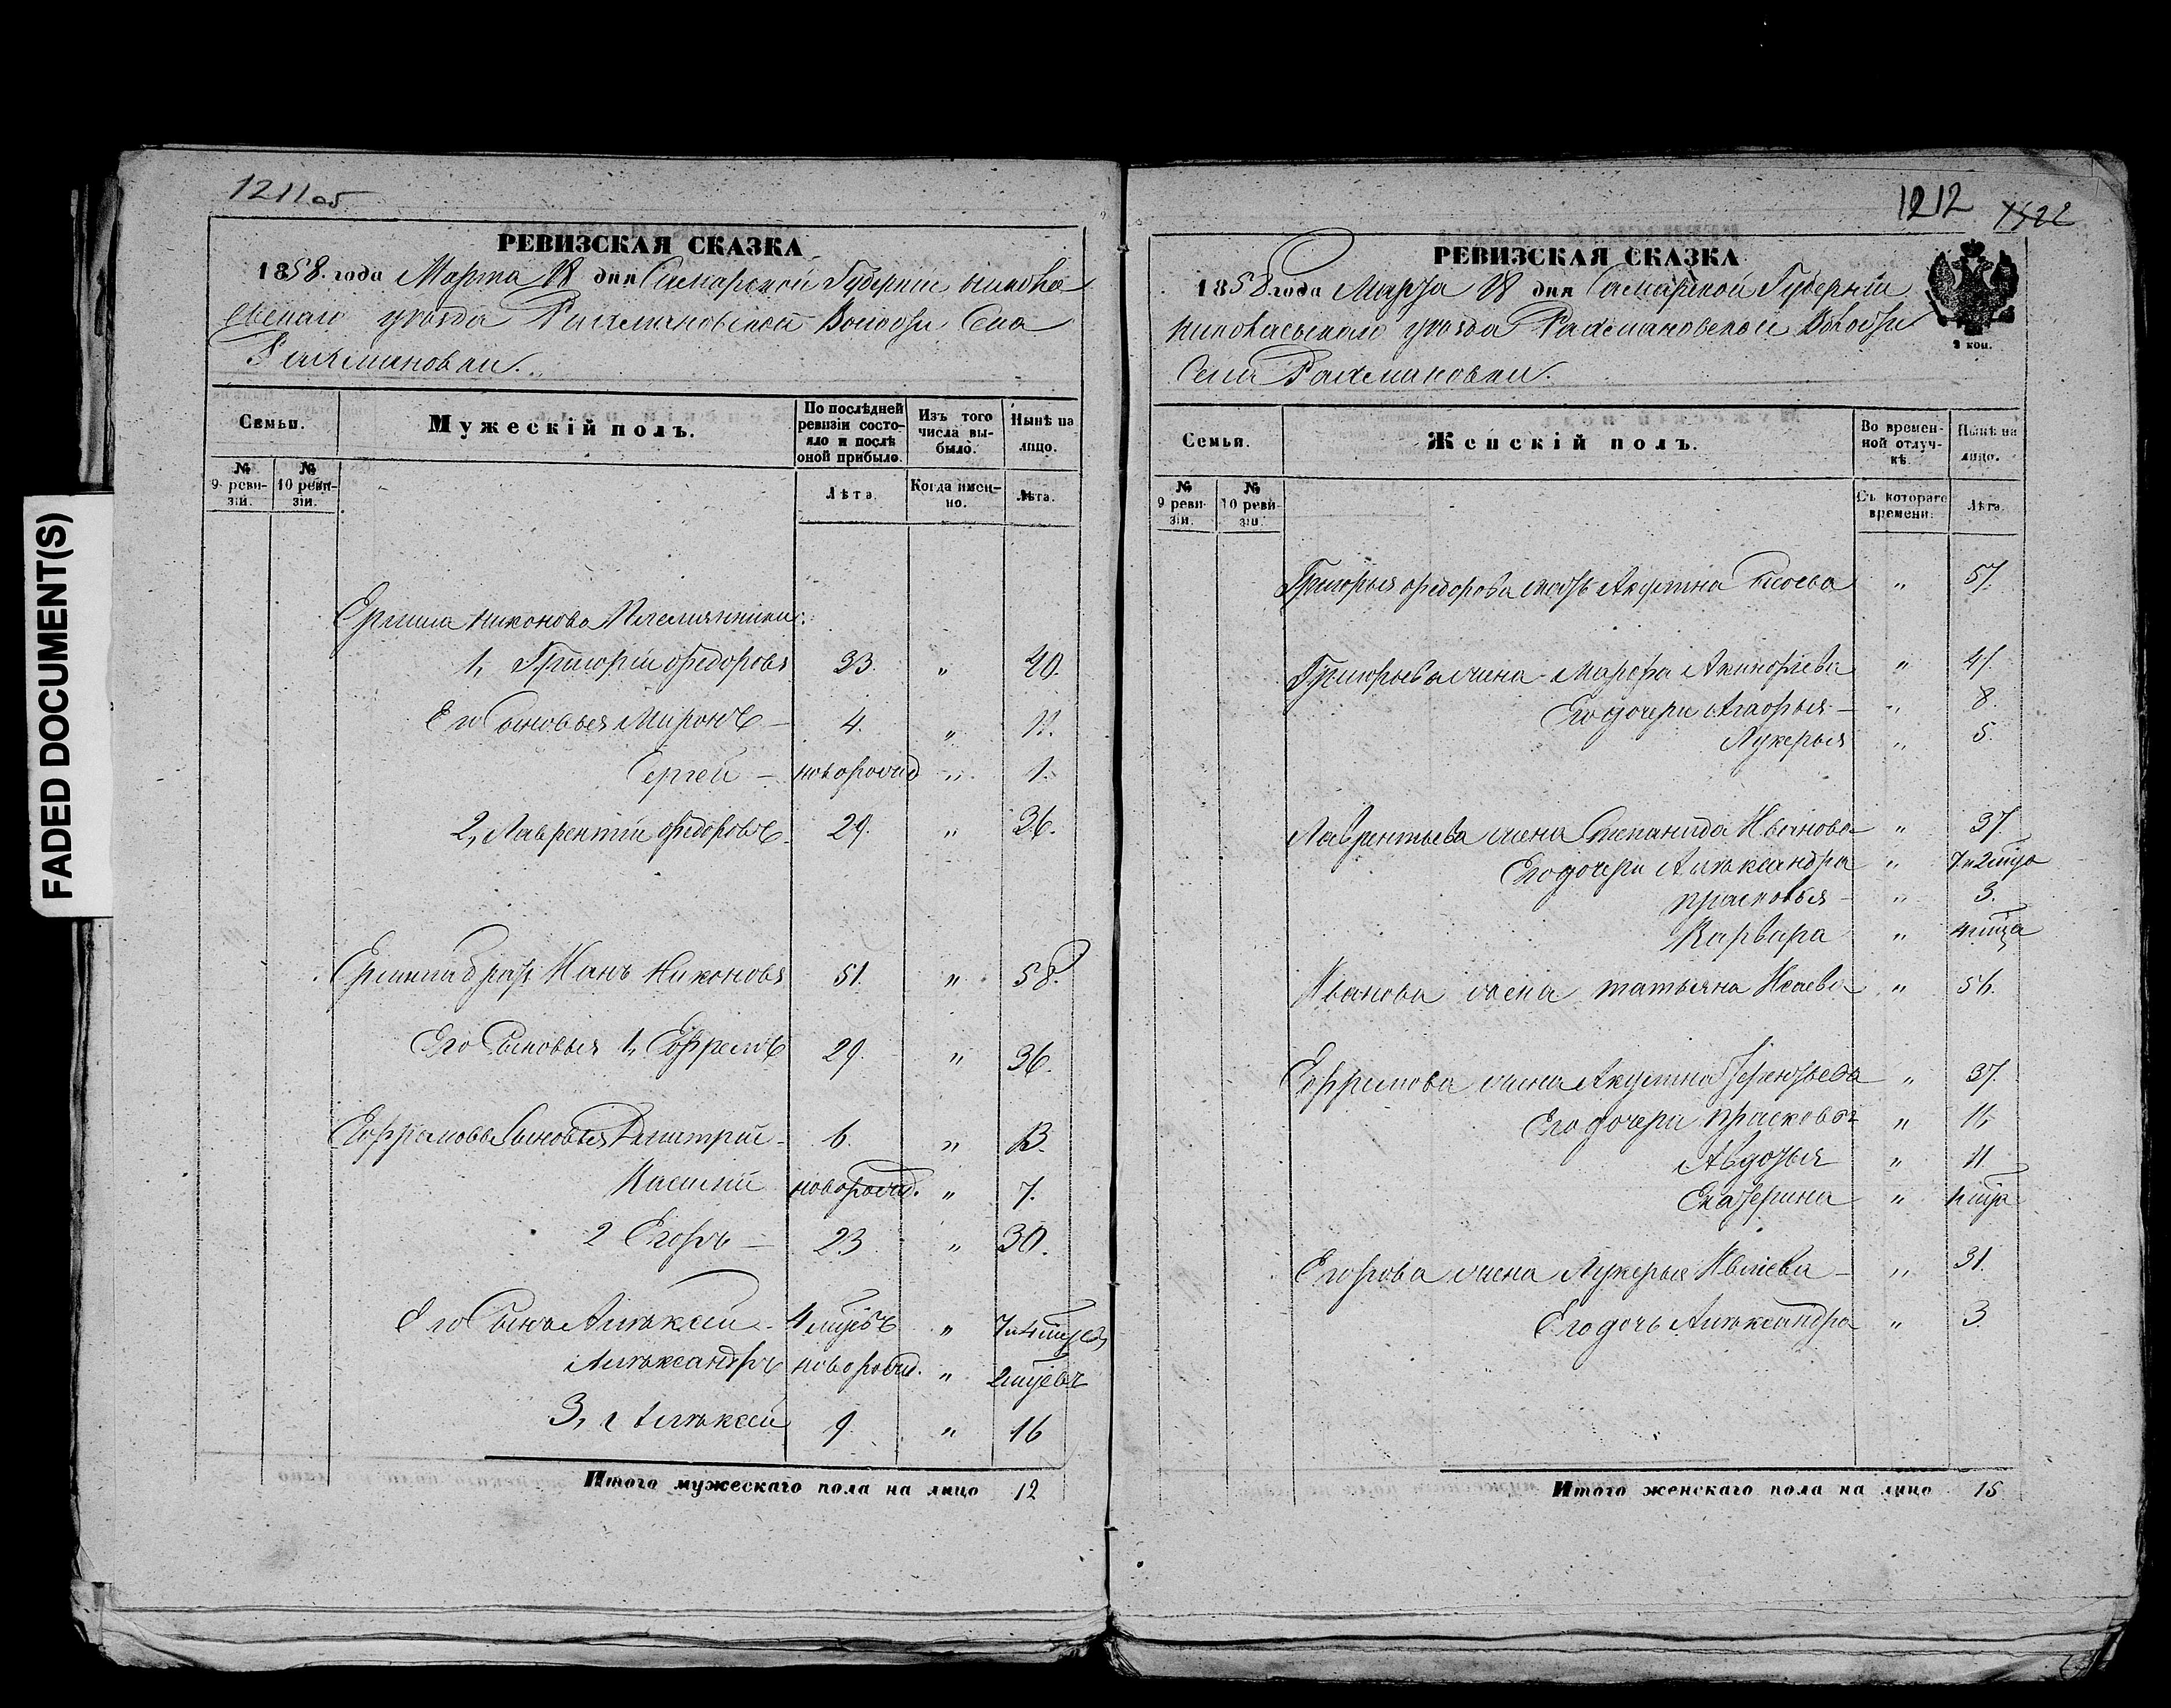 FADED DOCUMENT(S)
1211об
РЕВИЗСКАЯ СКАЗКА
1858 года Марта 18 дня Самарской Губернiи Никола
евскаго уѣзда Рахмановской Волости Села
Рахмановки.
Семьи. Мужескiй полъ. По послѣдней ревизiи состояло и послѣ оной прибыло. Изъ того числа выбыло. Нынѣ на лицо.
№ 9 ревизiи. № 10 ревизiи. Лѣта. Когда именно. Лѣта.
Ермила Никонова Племянники:
1, Григорiй Федоровъ 33. " 40.
Его Сыновья Миронъ — 4. " 11.
Сергей — новорожд " 1.
2, Лаврентiй Федоровъ. 29. " 36.
Ермила братъ Иванъ Никоновъ 51. " 58.
Его Сыновья 1, Ефремъ 29. " 36.
Ефремовы Сыновья Дмитрiй — 6. " 13.
Василiй новорожд. " 7.
2 Егоръ — 23 " 30.
Его Сынъ Алѣксей — 4 мцъ " 7 и 4 мцъ
Алѣксандръ новорожд. " 2 мцъ
3, Алѣксей 9. " 16
Итого мужескаго пола на лицо 12
1212 1522
РЕВИЗСКАЯ СКАЗКА
1858 года Марта 18 дня Самарской Губернiи
Николаевскаго уѣзда Рахмановской Волости
Села Рахмановки.
2 коп.
Семьи. Женскiй полъ. Во временной отлучкѣ. Нынѣ на лицо.
№ 9 ревизiи. № 10 ревизiи. Съ котораго времени. Лѣта.
Григорья Федорова мать Акулина " 57.
Григорьева жена Марфа " 41.
Его дочери Агафья — " 8.
Лукерья " 5.
Лаврентьева жена Степанида Иванова " 37.
Его дочери Алѣксандра " 7 и 2 мца
Прасковья — " 3.
Варвара " 4 мца
Иванова жена Татьяна Исаева " 56.
Ефримова жена Акулина " 37.
Его дочери Прасковья "
Авдотья " 11.
Екатерина "
Егорова жена Лукерья — " 31.
Его дочь Алѣксандра " 3
Итого женскаго пола на лицо 15